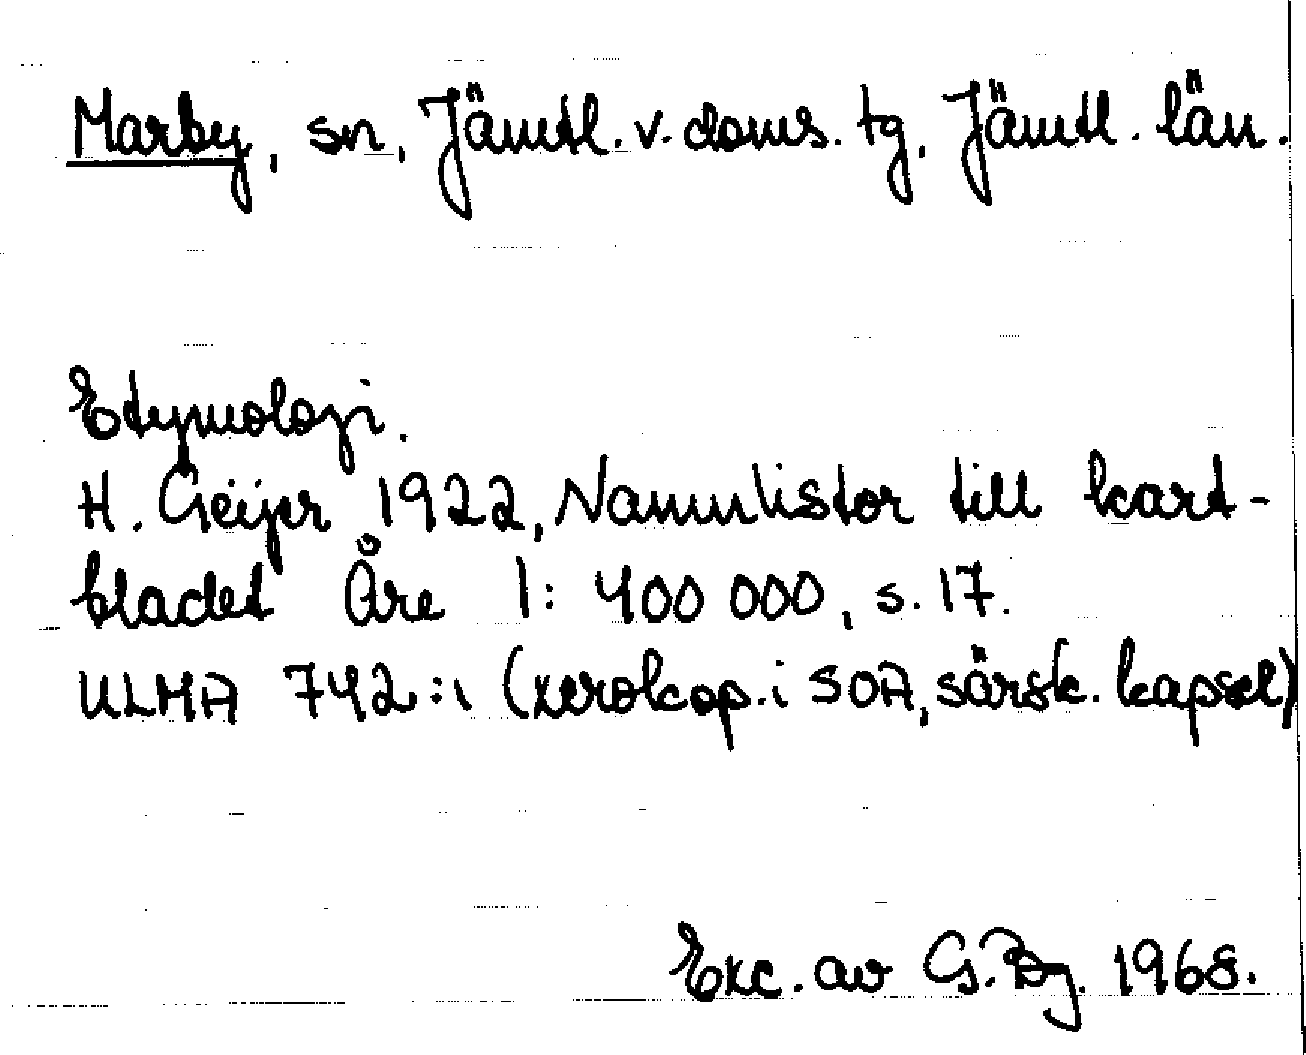 Marby, sn, Jämtl. v. doms. tg, Jämtl. län.
Etymologi.
H. Geijer 1922, Namnlistor till kart-
bladet Åre 1: 400 000, s. 17.
ULMA 742:1 (xerokop. i SOA, särsk. kapsel)
Exc. av G. Bg. 1968.